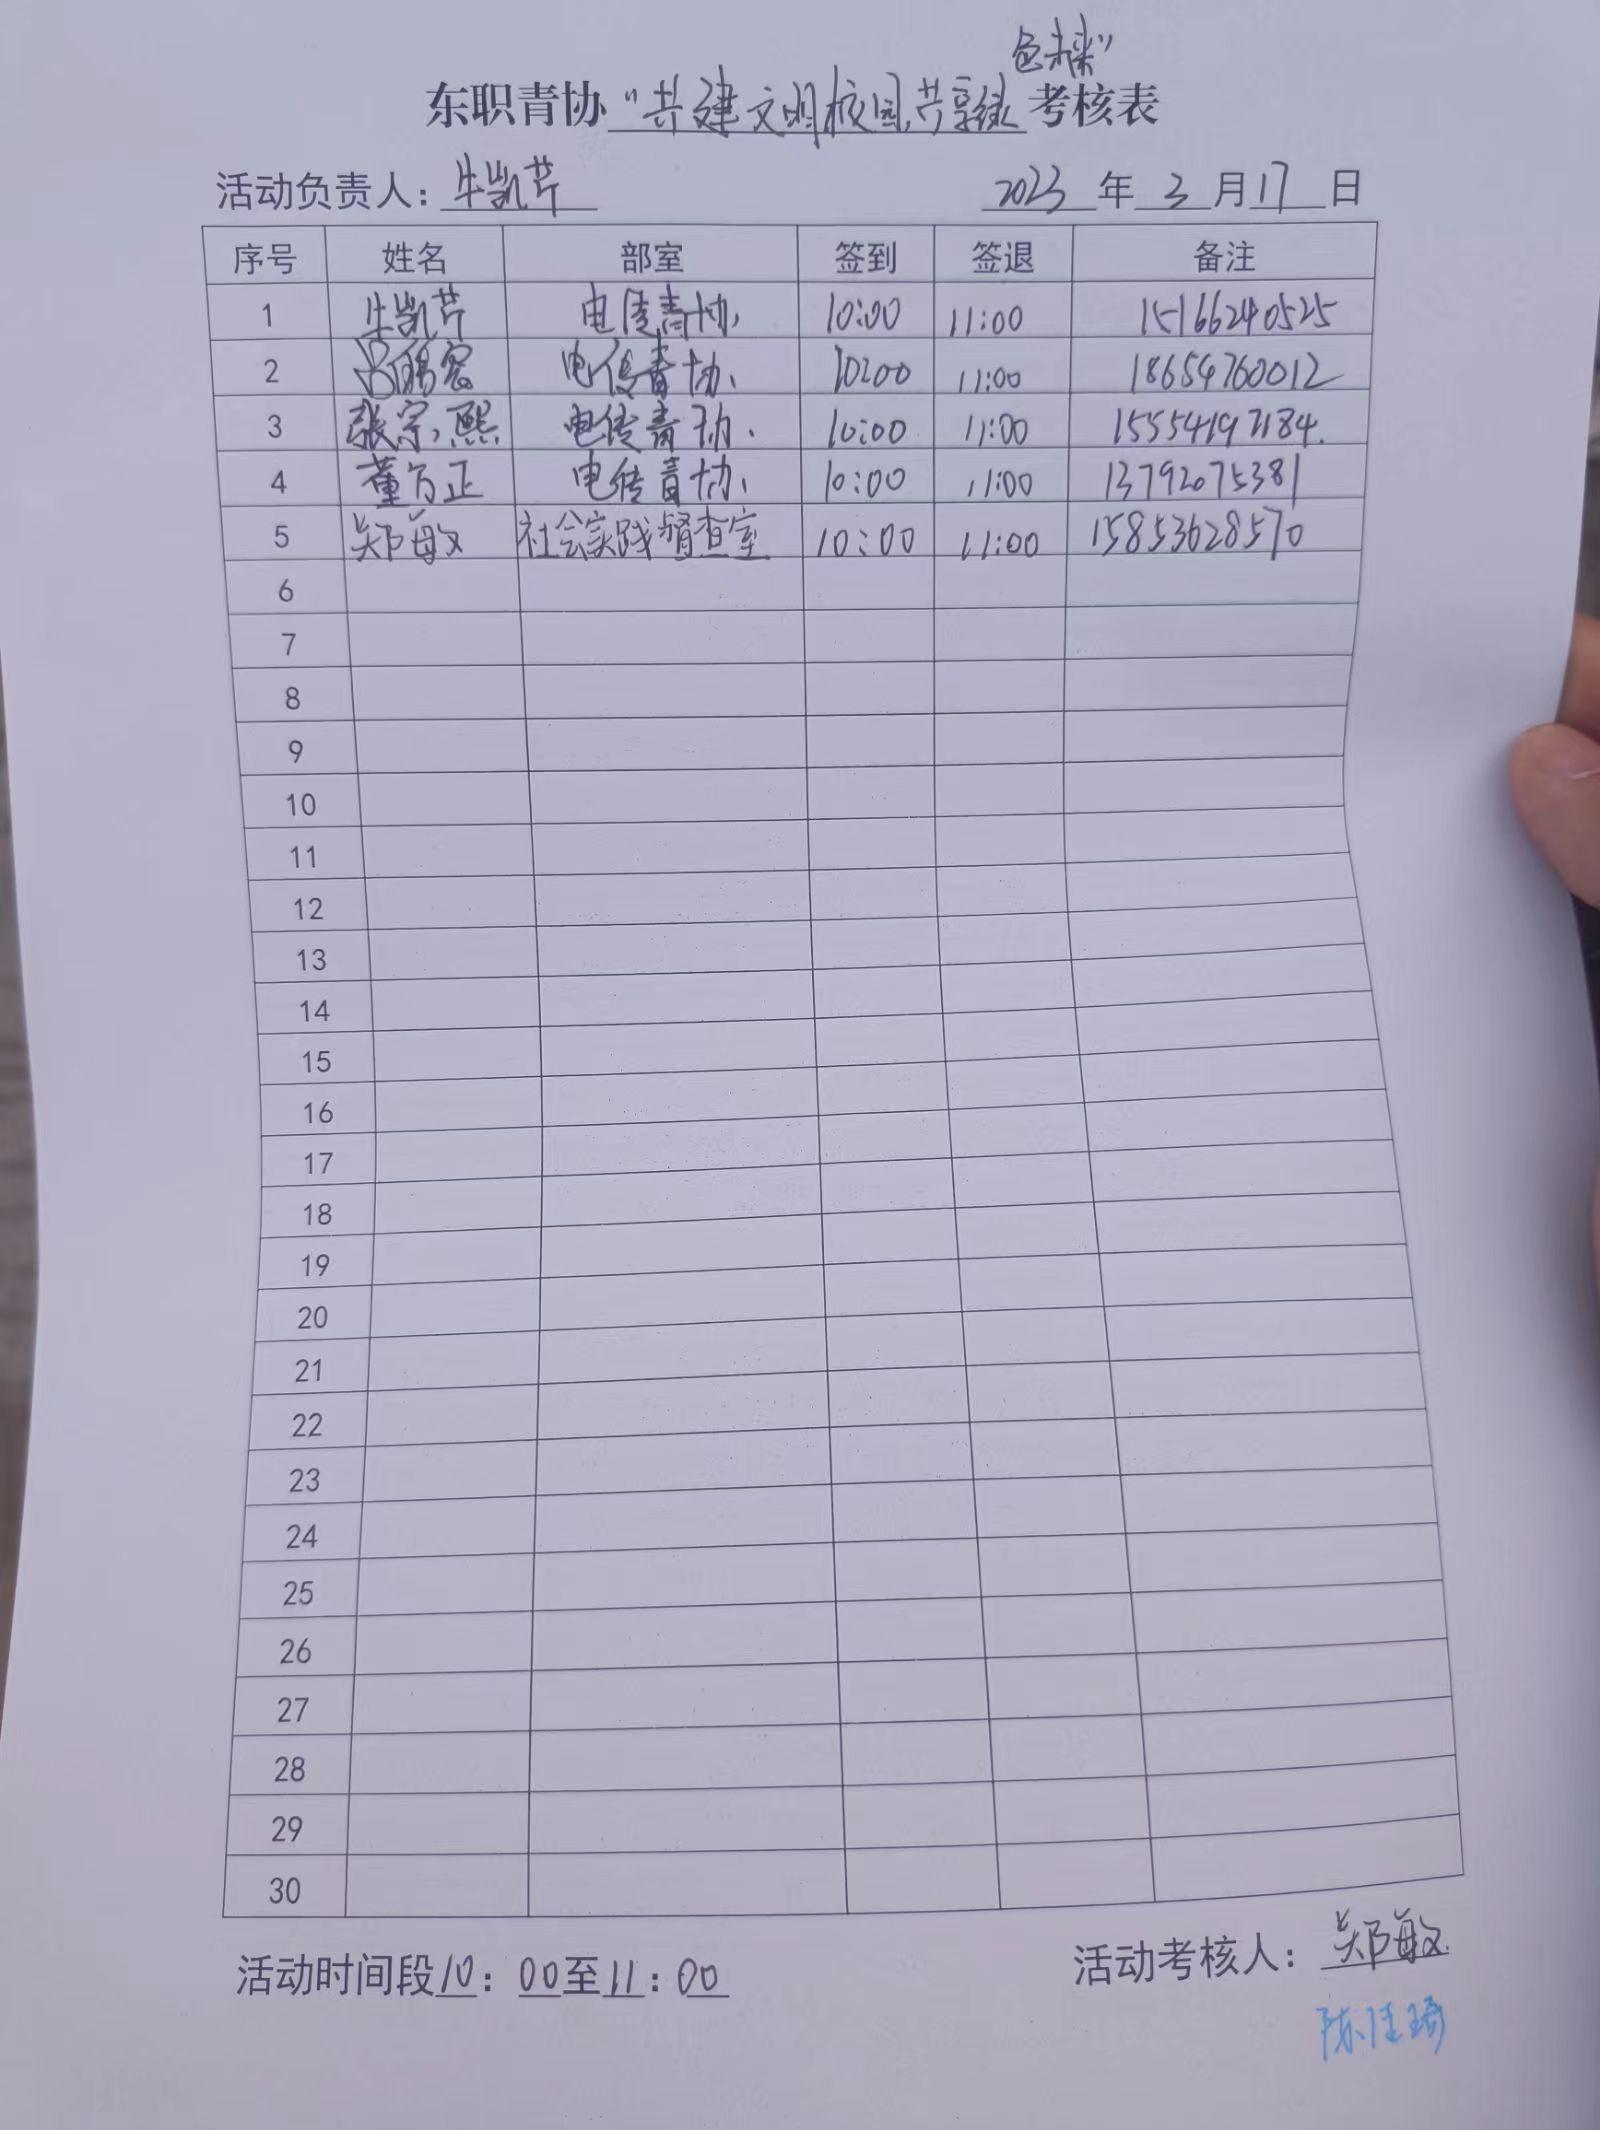 色未来”
东职青协“共建文明校园,共享绿考核表
活动负责人:牛凯芹 2023年3月17日
序号 姓名 部室 签到 签退 备注
1 牛凯芹 电传青协 10:00 11:00 15166240525
2 吕鹏宸 电传青协 10:00 11:00 18654760012
3 张宗熙 电传青协 10:00 11:00 15554197184
4 董方正 电传青协 10:00 11:00 13792075381
5 郑敏 社会实践督查室 10:00 11:00 15853628570
6
7
8
9
10
11
12
13
14
15
16
17
18
19
20
21
22
23
24
25
26
27
28
29
30
活动时间段10:00至11:00 活动考核人:郑敏
陈佳琦